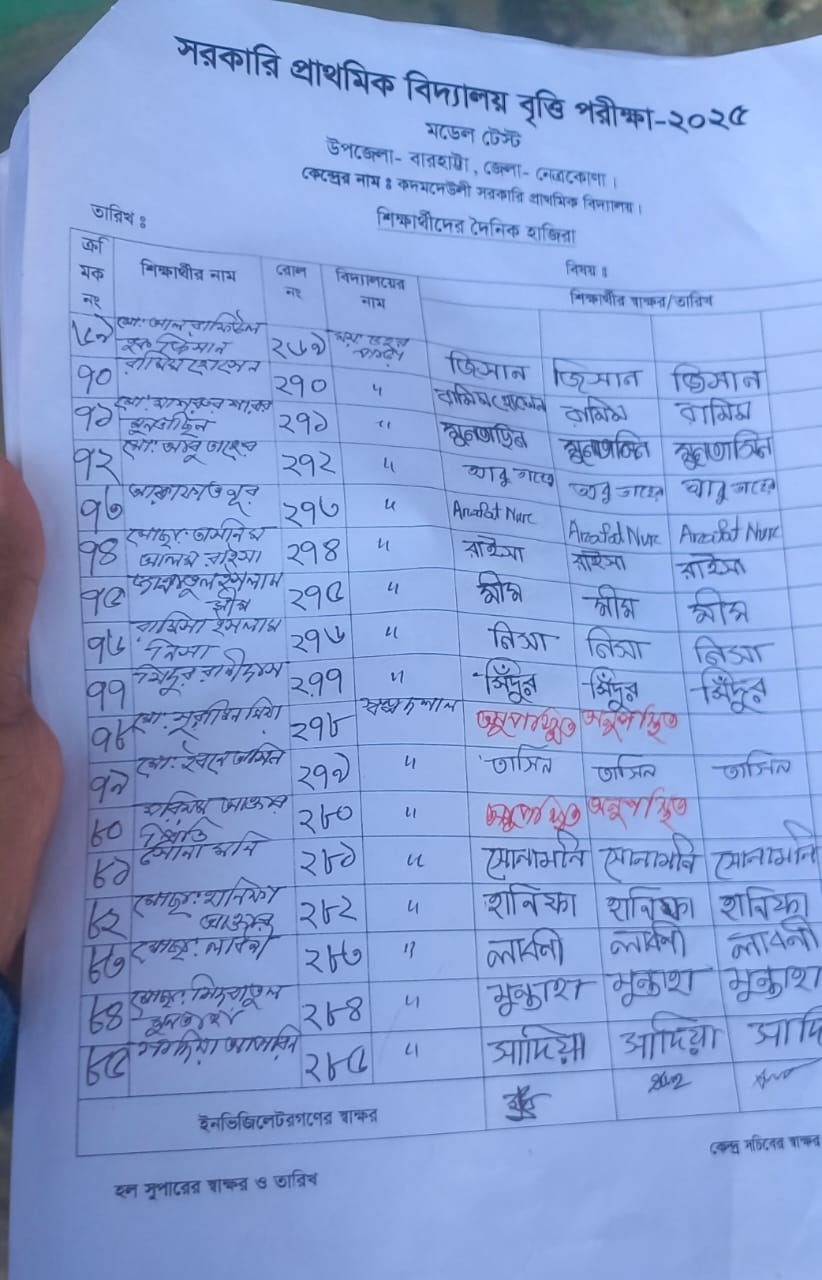 সরকারি প্রাথমিক বিদ্যালয় বৃত্তি পরীক্ষা-২০২৫
মডেল টেস্ট
উপজেলা- বারহাট্টা, জেলা- নেত্রকোণা।
কেন্দ্রের নাম ঃ কদমদেউলী সরকারি প্রাথমিক বিদ্যালয়।
তারিখ ঃ
শিক্ষার্থীদের দৈনিক হাজিরা
ক্রমিক নং শিক্ষার্থীর নাম রোল নং বিদ্যালয়ের নাম বিষয় ঃ
শিক্ষার্থীর স্বাক্ষর/তারিখ
৬৯ মো: আল রাফিউল হক জিসান ২৬৯ জিসান জিসান জিসান
৭০ রামিম হোসেন ২৭০ " রামিম হোসেন রামিম রামিম
৭১ ২৭১ " মুনতাছিন মুনতাছিন মুনতাসিন
৭২ মো: আবু তাহের ২৭২ " আবু তাহের আবু তাহের আবু তাহের
৭৩ আরাফাত নূর ২৭৩ " Arafat Nure Arafat Nure Arafat Nure
৭৪ মোছা: তাসনিম আলম রাইসা ২৭৪ " রাইসা রাইসা রাইসা
৭৫ জান্নাতুল ইসলাম মীম ২৭৫ " মীম মীম মীম
৭৬ ইসলাম নিসা ২৭৬ " নিসা নিসা নিসা
৭৭ সিঁদুর রানী দাস ২৭৭ " সিঁদুর সিঁদুর সিঁদুর
৭৮ মো: মিয়া ২৭৮ অনুপস্থিত অনুপস্থিত
৭৯ মো: ইবনে তাসিন ২৭৯ " তাসিন তাসিন তাসিন
৮০ আক্তার ২৮০ " অনুপস্থিত অনুপস্থিত
৮১ সোনা মনি ২৮১ " সোনামনি সোনামনি সোনামনি
৮২ মোছা: হানিফা আক্তার ২৮২ " হানিফা হানিফা হানিফা
৮৩ মোছা: লাবনী ২৮৩ " লাবনী লাবনী লাবনী
৮৪ মোছা: ২৮৪ "
৮৫ সাদিয়া ২৮৫ " সাদিয়া সাদিয়া সাদি
ইনভিজিলেটরগণের স্বাক্ষর
কেন্দ্র সচিবের স্বাক্ষর
হল সুপারের স্বাক্ষর ও তারিখ